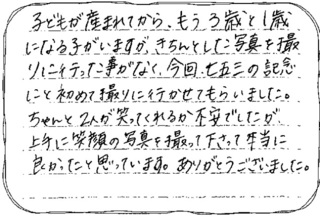 子どもが産まれてから、もう3歳と1歳
になる子がいますが、きちんとした写真を撮
りに行った事がなく、今回、七五三の記念
にと初めて撮りに行かせてもらいました。
ちゃんと2人が笑ってくれるか不安でしたが
上手に笑顔の写真を撮って下さって本当に
良かったと思っています。ありがとうございました。